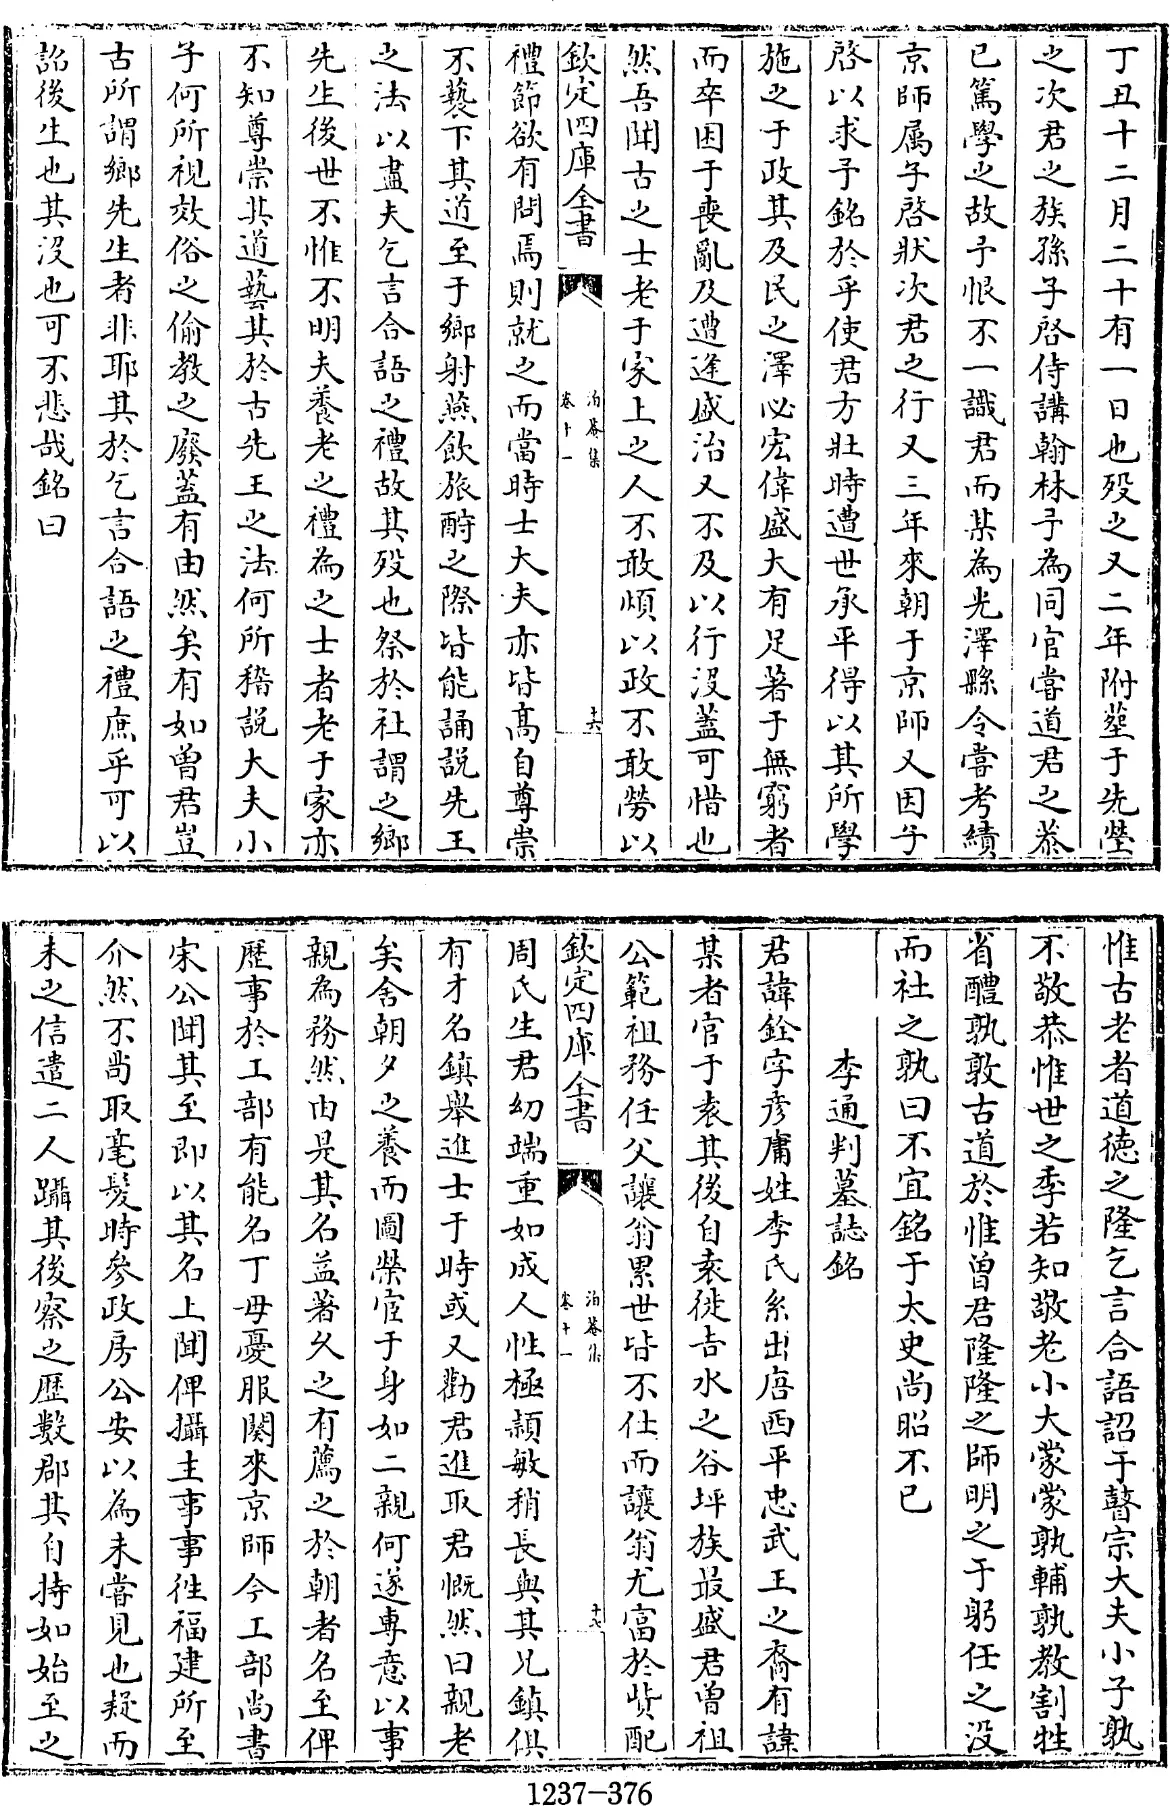 丁丑十二月二十有一日也歿之又二年附塟于先塋
之次君之族孫子啓侍講翰林予為同官嘗道君之恭
已篤學之故予恨不一識君而某為光澤縣令嘗考績
京師属子啓狀次君之行又三年來朝于京師又因子
啓以求予銘於乎使君方壯時遭世承平得以其所學
施之于政其及民之澤必宏偉盛大有足著于無窮者
而卒困于喪亂及遭逢盛治又不及以行沒蓋可惜也
然吾聞古之士老于家上之人不敢煩以政不敢勞以
欽定四庫全書
泊菴集
卷十一
十六
禮節欲有問焉則就之而當時士大夫亦皆髙自尊崇
不褻下其道至于鄉射燕飲旅酧之際皆能誦説先王
之法以盡夫乞言合語之禮故其歿也祭於社謂之鄉
先生後世不惟不明夫養老之禮為之士者老于家亦
不知尊崇其道藝其於古先王之法何所稽説大夫小
子何所視效俗之偷教之廢蓋有由然矣有如曽君豈
古所謂鄉先生者非耶其於乞言合語之禮庶乎可以
詔後生也其沒也可不悲哉銘曰
惟古老者道德之隆乞言合語詔于瞽宗大夫小子孰
不敬恭惟世之季若知敬老小大蒙蒙孰輔孰教割牲
省醴孰敦古道於惟曽君隆隆之師明之于躬任之没
而社之孰曰不宜銘于太史尚昭不已
李通判墓誌銘
君諱銓字彦庸姓李氏系出唐西平忠武王之裔有諱
某者官于袁其後自袁徙吉水之谷坪族最盛君曽祖
公範祖務任父讓翁累世皆不仕而讓翁尤富於貲配
欽定四庫全書
泊菴集
卷十一
十七
周氏生君幼端重如成人性極穎敏稍長與其兄鎮俱
有才名鎮舉進士于時或又勸君進取君慨然曰親老
矣舍朝夕之養而圖榮宦于身如二親何遂專意以事
親為務然由是其名益著久之有薦之於朝者名至俾
歴事於工部有能名丁母憂服闋來京師今工部尚書
宋公聞其至即以其名上聞俾攝主事事徃福建所至
介然不尚取毫髮時參政房公安以為未嘗見也疑而
未之信遣二人躡其後察之歴數郡其自持如始至之
1237-376